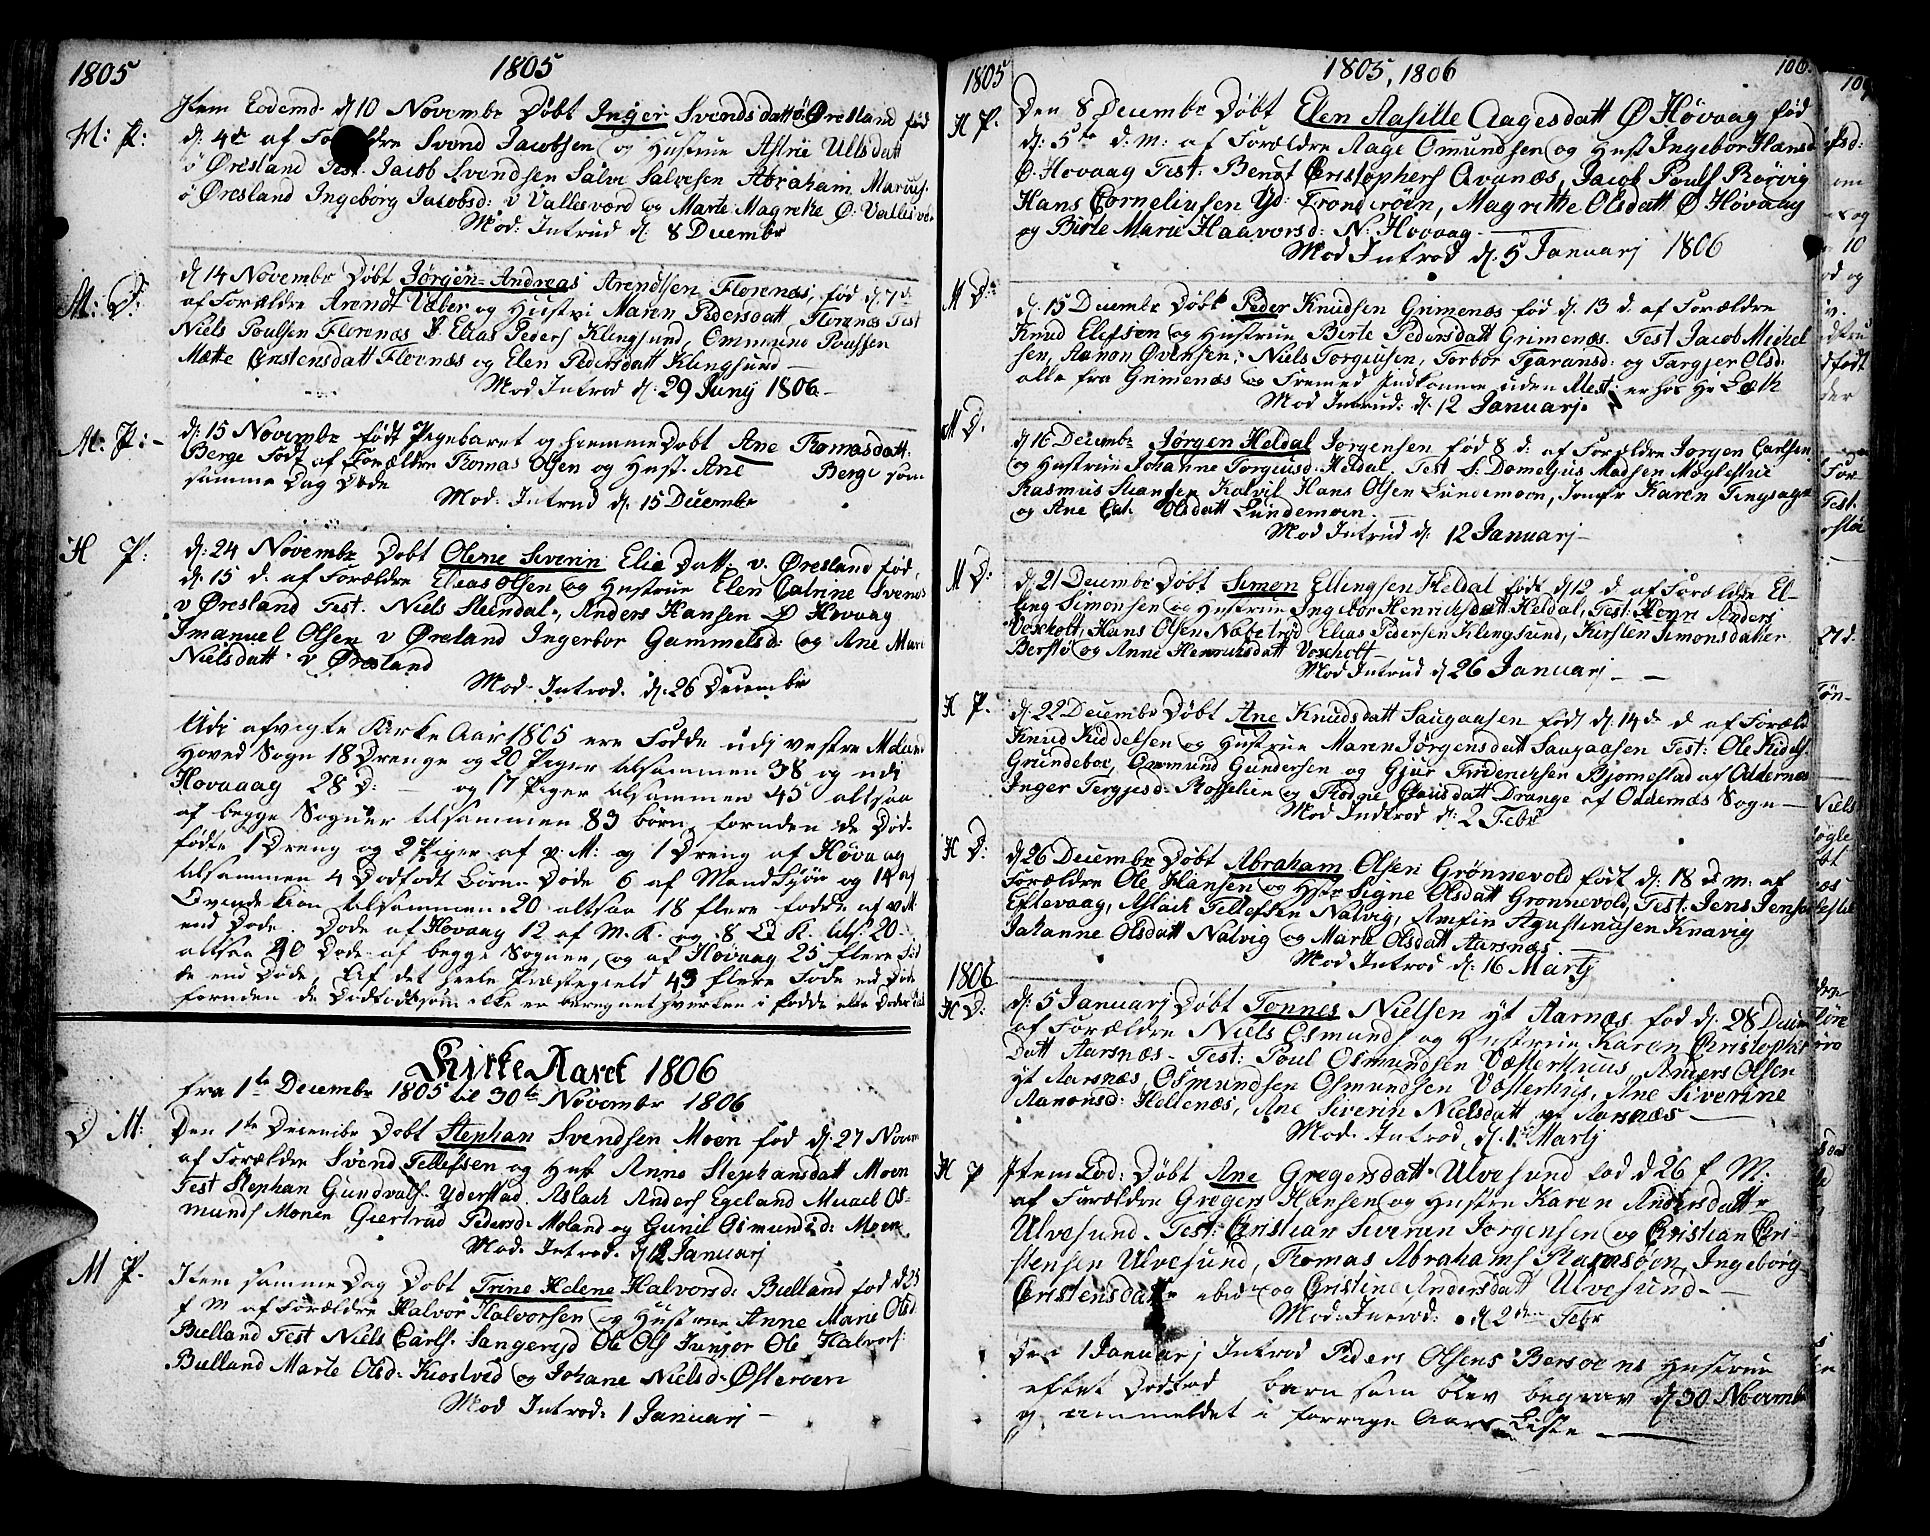 1805
1805
Item Eodemd. d 10 Novembr Døbt Inger Svendsdatt ø Øresland fød
M: P:
d: 4de af Forældre Svend Jacobsen og Hustrue Astrie Ullsdatt
ö Øresland Test: Jacob Svendsen Salve Salvesen Abraham Marcus:
ö Øresland Ingeborg Jacobsd: v Vallesværd og Marte Magrethe Ø. Vallesvær
Mod: Introd d: 8 Decembr
d 14 Novembr Døbt Jørgen Andreas Arendtsen Florenæs, fød d: 7 d
M: D:
af Forældre Arendt Weber og Hustru Maren Pedersdatt Florenæs Test
Niels Poulsen Florenæs Elias Peders Klingsund, Ommund Poulsen
Mætte Christensdatt Florenæs og Elen Pedersdatt Klingsund
Mod Introd d: 29 Junij 1806
M: P:
d: 15 Novembr født Pigebaret og hiemme Døbt Ane Thomasdatt:
Berge Født af Forældre Thomas Olsen og Hust. Ane Berge som
samme Dag Døde
Mod: Introd d: 15 Decembr
H P:
d: 24 Novembr Døbt Olene Severin Elie Datt: v. Øresland fød
d: 15 d. af Forældre Elias Olsen og Hustrue Elen Catrine Svends
v Øresland Test. Niels Steendal, Anders Hansen Ø Høvaag
Imanuel Olsen v Øresland Ingerbor Gammelsd: og Ane Mari
Nielsdatt v Øresland
Mod. Introd. d: 26 Decembr
Udi afvigte Kirke Aar 1805 ere Fødde udj vestre Moland
Hoved Sogn 18 Drenge og 20 Piger tilsammen 38 og udi
Høvaaag 28 D: og 17 Piger tilsammen 45 altsaa
af begge Sogner tilsammen 83 børn, foruden de Død-
fødte 1 Dreng og 2 Piger af v: M: og 1 Dreng af Høvaag
tilsammen 4 Dødfødt Børn. Døde 6 af Mandkjøn og 14 af
Qvindekiøn tilsammen 20 altsaa 18 flere fødde af v M
end Døde. Døde af Høvaag 12 af M. K. og 8 Q K. tils: 20
altsaa 40 Døde af begge Sogner, og af Høvaag 25 flere Fød
te end Døde, Af det heele Præstegield 43 flere Føde end Døde
foruden de Dødfødte som ikke er beregnet hverken i fødde eller Døde
Kirke Aaret 1806
fra 1te Decembr 1805 til 30te November 1806
D M:
Den 1te Decembr Døbt Stephan Svendsen Moen fød d: 27 Novem
af Forældre Svend Tellefsen og Hust Anne Stephansdatt Moen
Test Stephan Gundvalds. Yderstad, Aslach Anders Egeland Os-
munds Monen Giertrud Pedersd: Moland og Gunil Osmundsd: Moen
Mod. Introd. d 12 Januarj
M P.
Item samme Dag Døbt Trine Helene Halvorsd: Buelland fød d 25
f M af Forældre Halvor Halvorsen og Hustrue Anne Marie Olsd
Buelland Test Niels Carls. Sangereid Ole Ols Junior Ole Halvors:
Buelland Marte Olsd: Kiostved og Johane Nielsd: Østeroen
Mod Introd: 1 Januarj
1805
1805, 1806
106.
H P.
Den 8 Decembr Døbt Elen Aaselle Aagesdatt Ø Høvaag fød
d: 5te d: M: af Forældre Aage Omundsen og Hust Ingebor Hansd
Ø. Høvaag Test: Bendt Christophers Avanæs, Jacob Pouls Rørvig
Hans Corneliusen Yd: Tronderöen, Magrethe Olsdatt Ø Høvaag
og Birte Marie Haavorsd: N: Høvaag
Mod Introd d: 5 Januarj 1806
M D:
d: 15 Decembr Døbt Peder Knudsen Grimenæs fød d: 13 d. af Forældre
Knud Elefsen og Hustrue Birte Pedersdatt Grimenæs. Test Jacob Mickel
sen, Aanon Øvensen, Niels Torgiusen, Torbor Tjøransd: og Targjer Olsd:
alle fra Grimenæs
Mod Introd: d: 12 Januarj.
M D.
d 16 Decembr Jørgen Heldal Jørgensen fød 8 d: af Forældre Jørgen Carlsen
og Hustrue Johanne Torgiusd: Heldal. Test S: Domelius Madsen Møglestue
Rasmus Hansen Kalvil Hans Olsen Lundemoen, Jomfr Karen Tingsager
og Ane Cat. Olsdatt Lundemoen.
Mod Introd d: 12 Januarj
M D:
d: 21 Decembr Døbt Simon Ellingsen Heldal født d 12 d. af Forældre El-
ling Simonsen og Hustrue Ingebor Henrichsdatt Heldal, Test: Henr Anders
Voxholt, Hans Olsen Nabetrød, Elias Pedersen Klingsund, Kirsten Simonsdatter
Berstø og Anne Henrichsdatt Voxholt
Mod Introd d 26 Januarj
H P.
d: 22 Decembr Døbt Ane Knudsdatt Saugaasen født d: 14 d. d. af Foræld
Knud Kiddelsen og Hustrue Maren Jørgensdatt Saugaasen Test: Ole Kidels.
Grundeboe, Ommund Gundersen og Gjur Friderichsen Bjornestad af Oddernæs
Inger Tergjesd: Rosselien og Drange af Oddernæs Sogn
Mod Indtrod d: 2 Febr
H D:
d 26 Decembr Døbt Abraham Olsen Grönnevold født d: 18 d m. af
Forældre Ole Hansen og Hust Signe Olsdatt Grønnevold, Test: Jens Jensen
Eftevaag, Aslach Tellefsen Natvig, Amfin Agustinusen Knavig
Johanne Olsdatt Natvig og Marie Olsdatt Aarsnæs
Mod Introd d: 16 Martj
1806
H D:
d: 5 Januarj Døbt Tønnes Nielsen yt Aarnæs fød d: 28 Decem
af Forældre Niels Osmunds og Hustrue Karen Christophs
datt Aarsnæs - Test: Poul Osmundsen Væsterhuus, Anders Olsen
yt Aarsnæs, Osmundsen Osmundsen Væsterhus, Ane Siverine
Aanonsd: Hellenæs, Ane Siverin Nielsdatt yt Aarsnæs
Mod. Introd. d. 1 Martj
H P
Item Eod: Døbt Ane Gregersdatt Ulvesund fød d 26 f M:
af Forældre Gregers Hansen og Hustrue Karen Andersdatt
Ulvesund. Test: Christian Severen Jørgensen og Christian Chri-
stensen Ulvesund, Thomas Abrahams Ramsøen, Ingeborg
Christensdatt ibid og Christine Andersdatt Ulvesund
Mod: Introd: d 2den Febr
Den 1 Januarj Introd Peders Olsens Bersoens Hustrue
efter Dødfød barn som blev begrav d 30 Novemb
og anmeldet i forrige Aars Liste